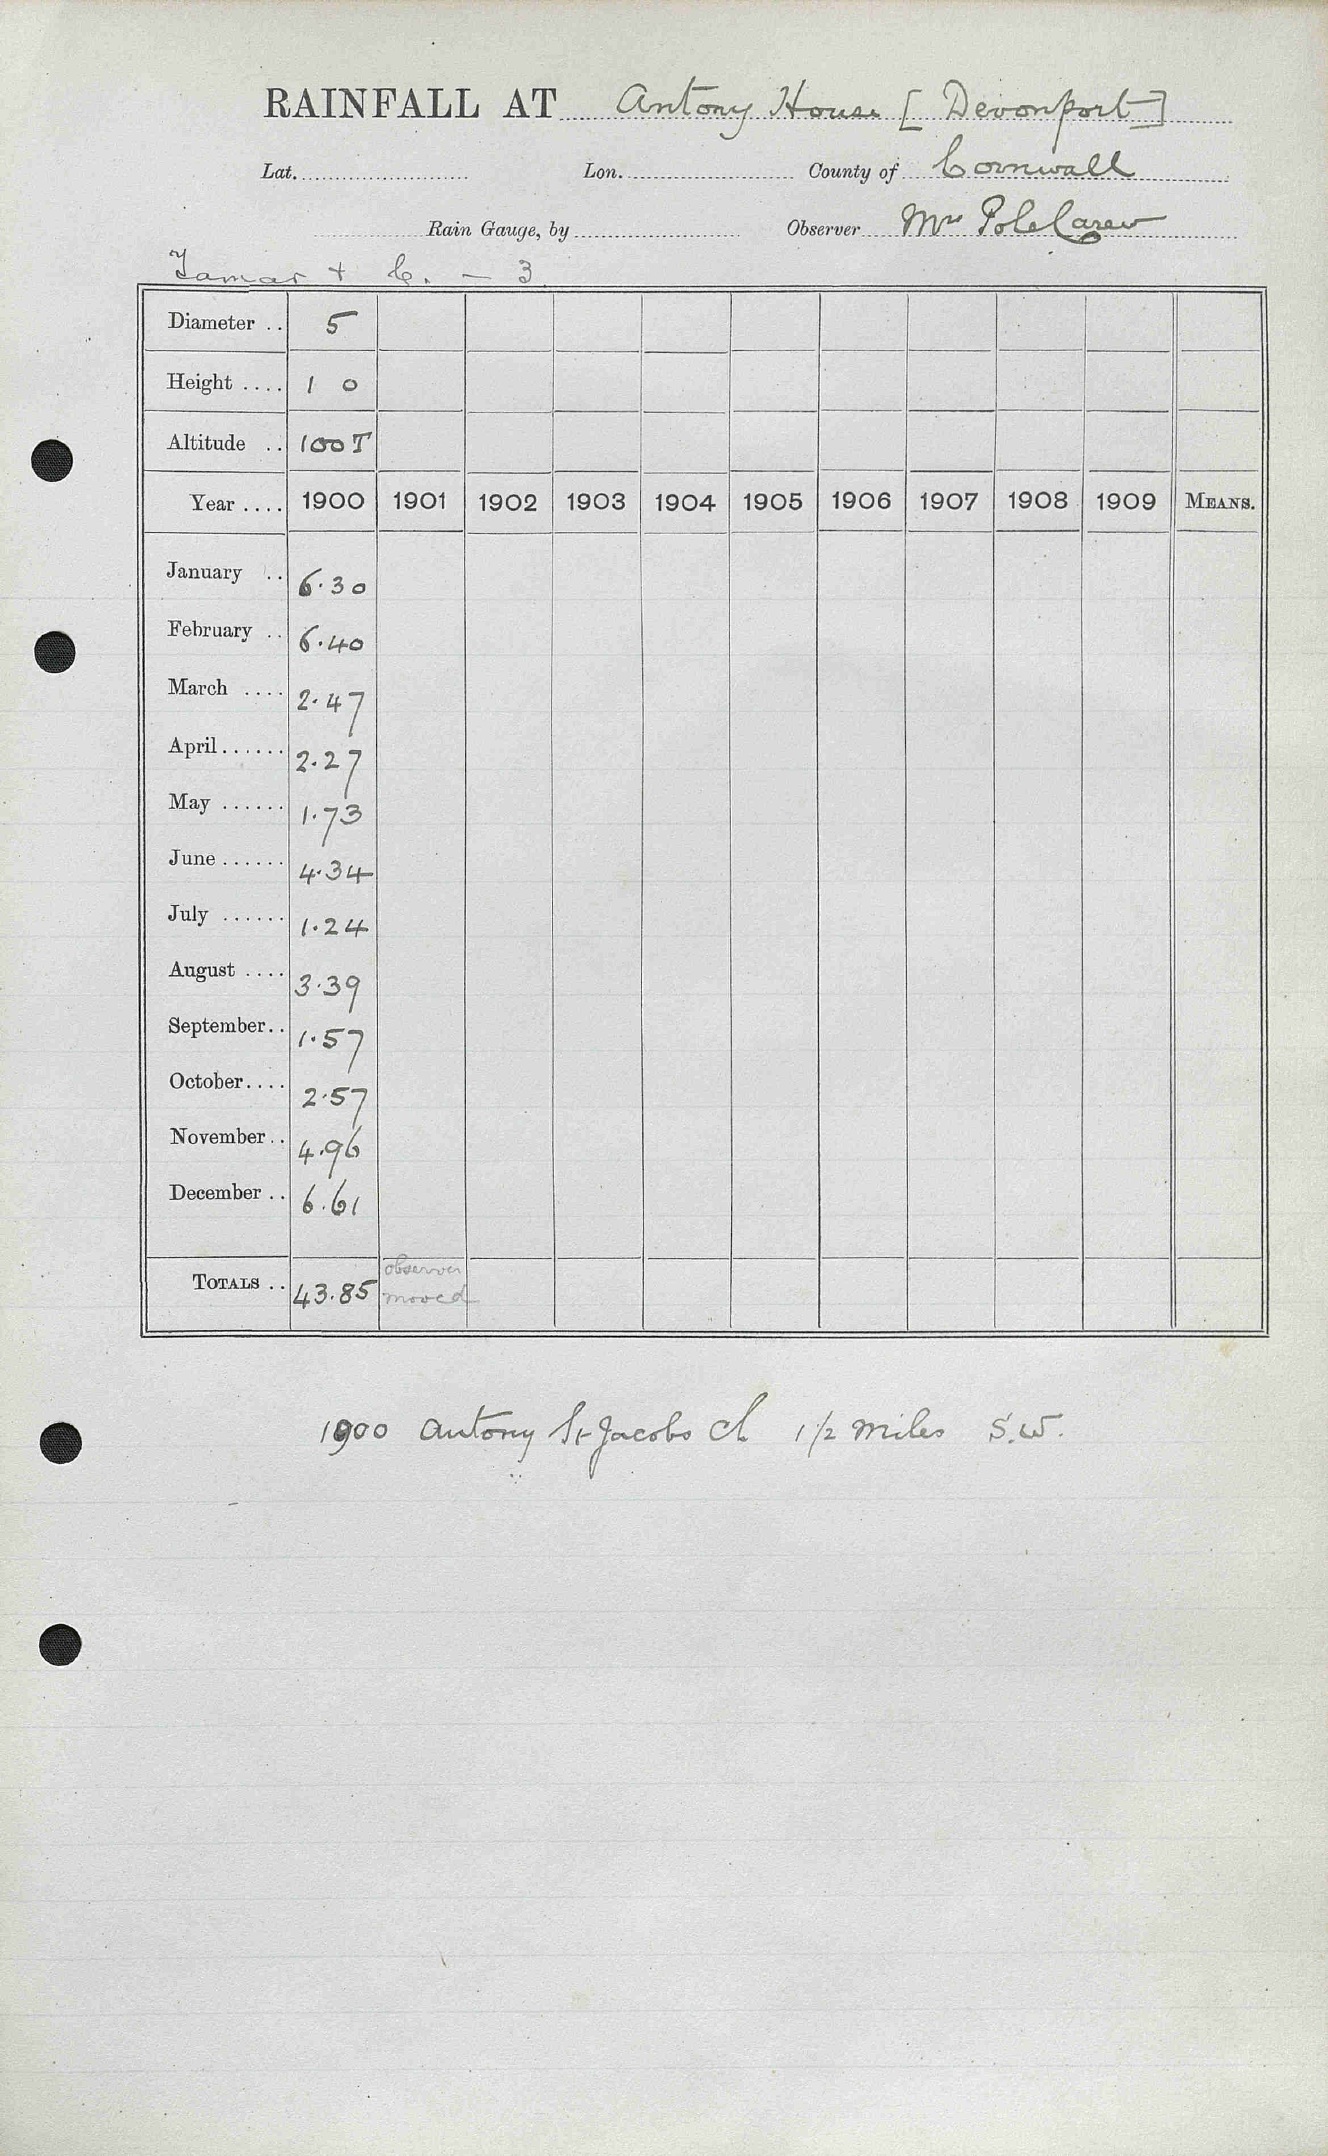 RAINFALL AT Antony House [Devonport]
Lat. Lon. County of Cornwall
Rain Gauge, by Observer Mrs Pole Carew
Tamar & C. – 3
Diameter .. 5
Height .... 1 0
Altitude .. 100 T
Year .... 1900 1901 1902 1903 1904 1905 1906 1907 1908 1909 MEANS.
January .. 6.30
February .. 6.40
March .... 2.47
April ...... 2.27
May ...... 1.73
June ...... 4.34
July ...... 1.24
August .... 3.39
September .. 1.57
October .... 2.57
November .. 4.96
December .. 6.61
TOTALS .. 43.85 observer
moved
1900 Antony St Jacobs Ch 1 1/2 miles S.W.